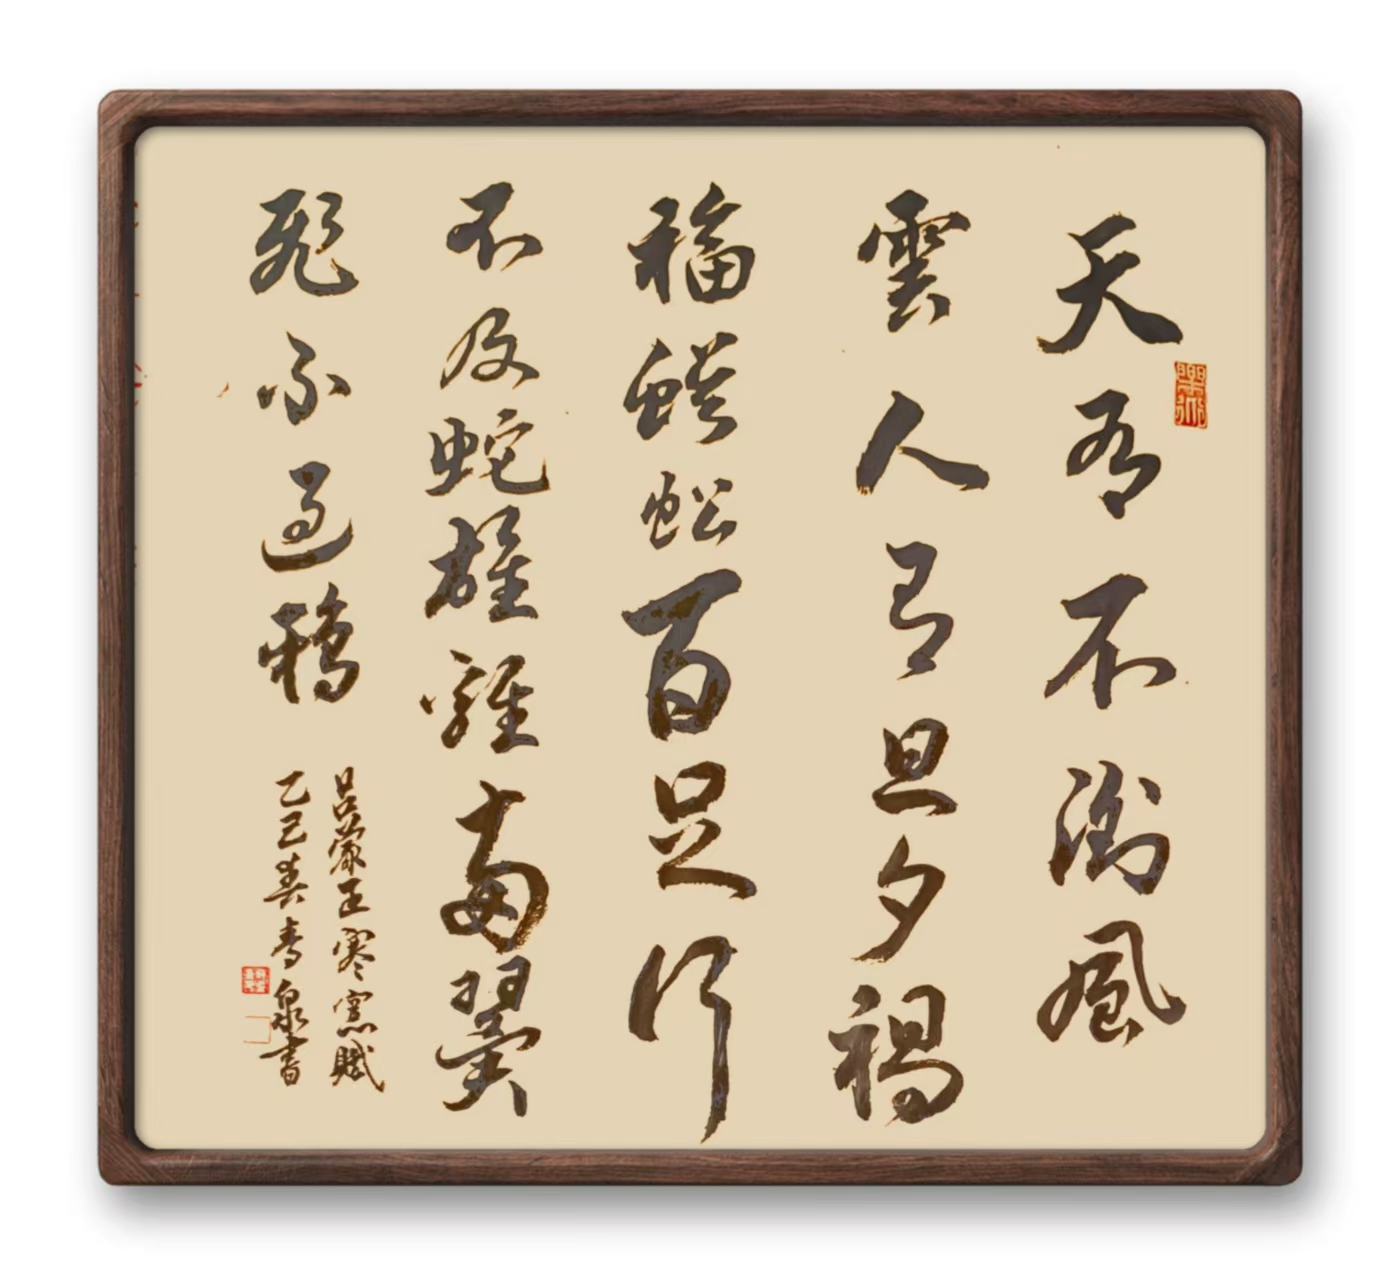 天有不測風
雲人有旦夕禍
福蜈蚣百足行
不及蛇雄雞兩翼
飛不過鴉
呂蒙正寒窯賦
乙巳春泉書